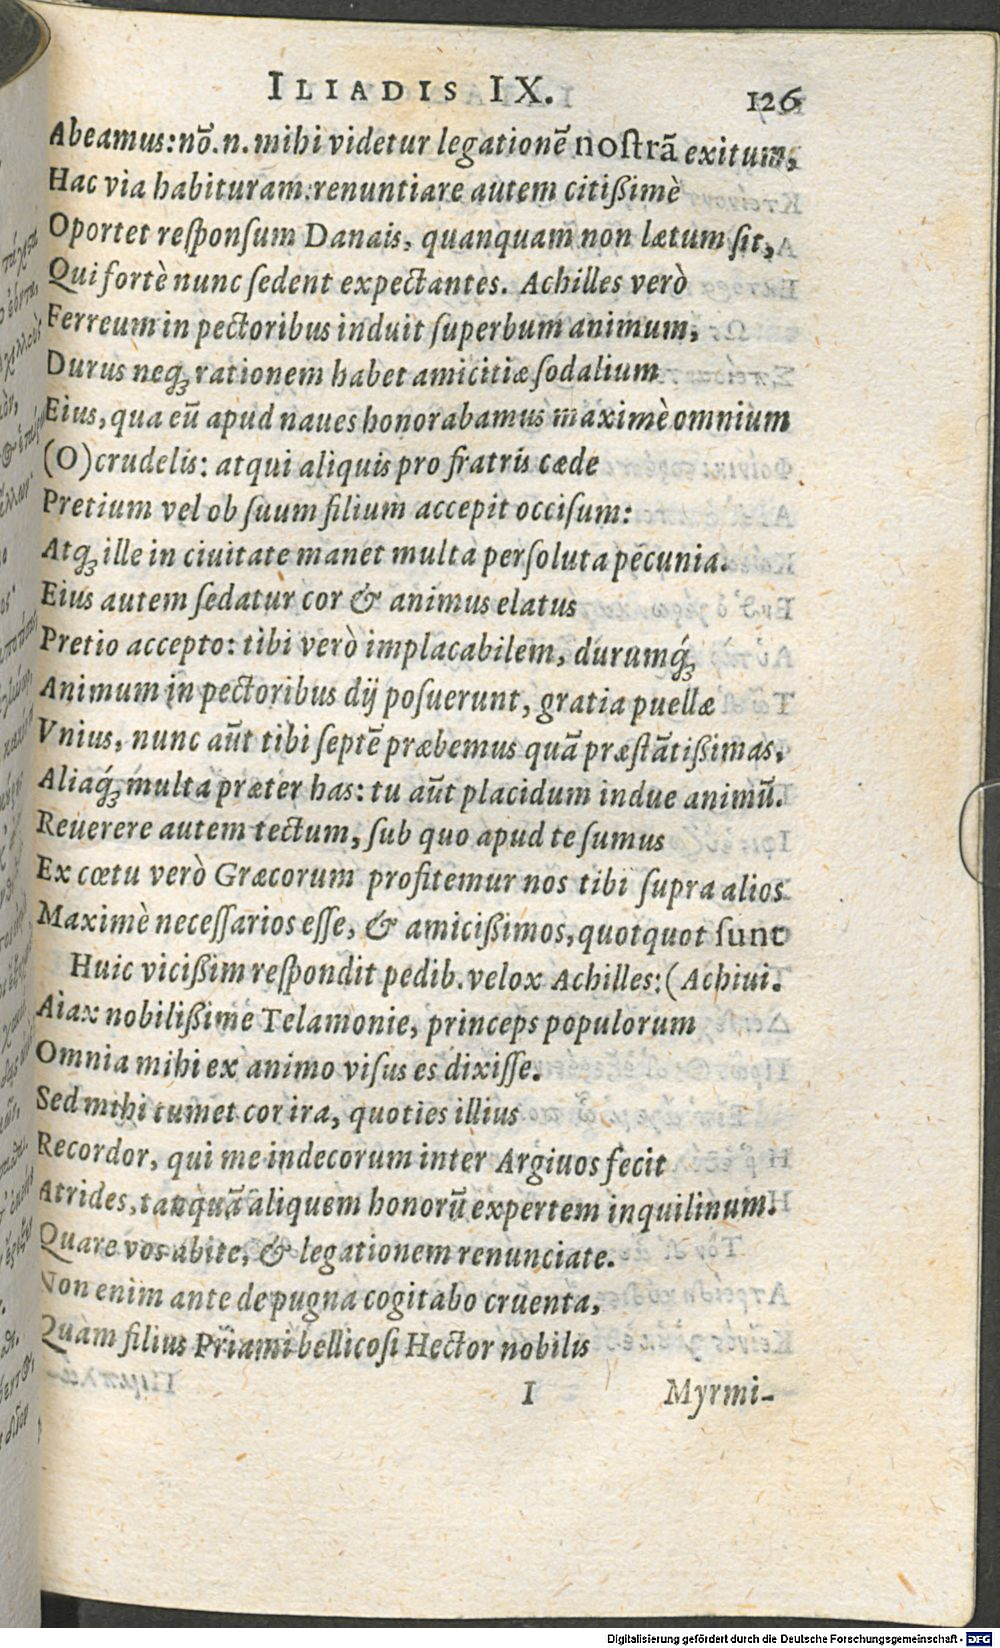 ILIADIS IX. 126
Abeamus: nō. n. mihi videtur legationē noſtrā exitum,
Hac via habituram: renuntiare autem citißimè
Oportet reſponſum Danais, quanquam non lætum ſit,
Qui fortè nunc ſedent expectantes. Achilles verò
Ferreum in pectoribus induit ſuperbum animum,
Durus neqꝫ rationem habet amicitiæ ſodalium
Eius, qua eū apud naues honorabamus maximè omnium
(O) crudelis: atqui aliquis pro fratris cæde
Pretium vel ob ſuum filium accepit occiſum:
Atqꝫ ille in ciuitate manet multa perſoluta pecunia.
Eius autem ſedatur cor & animus elatus
Pretio accepto: tibi verò implacabilem, durumq́ꝫ
Animum in pectoribus dij poſuerunt, gratia puellæ
Vnius, nunc aūt tibi ſeptē præbemus quā præſtātißimas,
Aliaq́ꝫ multa præter has: tu aūt placidum indue animū.
Reuerere autem tectum, ſub quo apud te ſumus
Ex cœtu verò Græcorum profitemur nos tibi ſupra alios
Maximè neceſſarios eſſe, & amicißimos, quotquot ſunt
Huic vicißim reſpondit pedib. velox Achilles: (Achiui.
Aiax nobilißime Telamonie, princeps populorum
Omnia mihi ex animo viſus es dixiſſe.
Sed mihi tumet cor ira, quoties illius
Recordor, qui me indecorum inter Argiuos fecit
Atrides, tanquā aliquem honorū expertem inquilinum.
Quare vos abite, & legationem renunciate.
Non enim ante de pugna cogitabo cruenta,
Quam filius Priami bellicoſi Hector nobilis
I Myrmi-
Digitalisierung gefördert durch die Deutsche Forschungsgemeinschaft - DFG